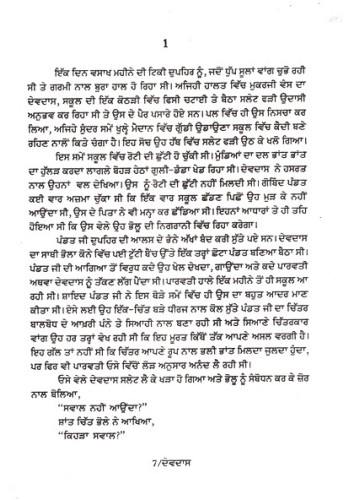 1
ਇੱਕ ਦਿਨ ਵਸਾਖ ਮਹੀਨੇ ਦੀ ਟਿਕੀ ਦੁਪਹਿਰ ਨੂੰ, ਜਦੋਂ ਧੁੱਪ ਸੂਲਾਂ ਵਾਂਗ ਚੁਭੋ ਰਹੀ
ਸੀ ਤੇ ਗਰਮੀ ਨਾਲ ਬੁਰਾ ਹਾਲ ਹੋ ਰਿਹਾ ਸੀ। ਅਜਿਹੀ ਹਾਲਤ ਵਿੱਚ ਮੁਕਰਜੀ ਵੰਸ ਦਾ
ਦੇਵਦਾਸ, ਸਕੂਲ ਦੀ ਇੱਕ ਕੋਠੜੀ ਵਿੱਚ ਵਿਸੀ ਚਟਾਈ ਤੇ ਬੈਠਾ ਸਲੇਟ ਫੜੀ ਉਦਾਸੀ
ਅਨੁਭਵ ਕਰ ਰਿਹਾ ਸੀ ਤੇ ਉਸ ਦੇ ਪੈਰ ਪਸਾਰੇ ਹੋਏ ਸਨ। ਪਲ ਵਿੱਚ ਹੀ ਉਸ ਨਿਸਚਾ ਕਰ
ਲਿਆ, ਅਜਿਹੇ ਸੁੰਦਰ ਸਮੇਂ ਖੁਲ੍ਹੇ ਮੈਦਾਨ ਵਿੱਚ ਗੁੱਡੀ ਉਡਾਉਣਾ ਸਕੂਲ ਵਿੱਚ ਕੈਦੀ ਬਣੇ
ਰਹਿਣ ਨਾਲੋਂ ਕਿਤੇ ਚੰਗਾ ਹੈ। ਇਹ ਸੋਚ ਉਹ ਹੱਥ ਵਿੱਚ ਸਲੇਟ ਫੜੀ ਉਠ ਕੇ ਖਲੋ ਗਿਆ।
ਇਸ ਸਮੇਂ ਸਕੂਲ ਵਿੱਚ ਰੋਟੀ ਦੀ ਛੁੱਟੀ ਹੋ ਚੁੱਕੀ ਸੀ। ਮੁੰਡਿਆਂ ਦਾ ਦਲ ਭਾਂਤ ਭਾਂਤ
ਦਾ ਹੁੱਲੜ ਕਰਦਾ ਲਾਗਲੇ ਬੋਹੜ ਹੇਠਾਂ ਗੁਲੀ-ਡੰਡਾ ਖੇਡ ਰਿਹਾ ਸੀ। ਦੇਵਦਾਸ ਨੇ ਹਸਰਤ
ਨਾਲ ਉਹਨਾਂ ਵਲ ਦੇਖਿਆ। ਉਸ ਨੂੰ ਰੋਟੀ ਦੀ ਛੁੱਟੀ ਨਹੀਂ ਮਿਲਦੀ ਸੀ। ਗੋਬਿੰਦ ਪੰਡਤ
ਕਈ ਵਾਰ ਅਜ਼ਮਾ ਚੁੱਕਾ ਸੀ ਕਿ ਇੱਕ ਵਾਰ ਸਕੂਲ ਛੱਡਣ ਪਿਛੋਂ ਉਹ ਮੁੜ ਕੇ ਨਹੀਂ
ਆਉਂਦਾ ਸੀ, ਉਸ ਦੇ ਪਿਤਾ ਨੇ ਵੀ ਮਨ੍ਹਾ ਕਰ ਛੱਡਿਆ ਸੀ। ਇਹਨਾਂ ਆਧਾਰਾਂ ਤੇ ਹੀ ਤਹਿ
ਹੋਇਆ ਸੀ ਕਿ ਉਸ ਵੇਲੇ ਉਹ ਭੋਲੂ ਦੀ ਨਿਗਰਾਨੀ ਵਿੱਚ ਰਿਹਾ ਕਰੇਗਾ।
ਪੰਡਤ ਜੀ ਦੁਪਹਿਰ ਦੀ ਆਲਸ ਦੇ ਭੰਨੇ ਅੱਖਾਂ ਬੰਦ ਕਰੀ ਸੁੱਤੇ ਪਏ ਸਨ। ਦੇਵਦਾਸ
ਦਾ ਸਾਥੀ ਭੋਲਾ ਕੋਨੇ ਵਿੱਚ ਪਈ ਟੁੱਟੀ ਬੈਂਚ ਉੱਤੇ ਇੱਕ ਤਰ੍ਹਾਂ ਛੋਟਾ ਪੰਡਤ ਬਣਿਆ ਬੈਠਾ ਸੀ।
ਪੰਡਤ ਜੀ ਦੀ ਆਗਿਆ ਤੋਂ ਵਿਰੁਧ ਕਦੇ ਉਹ ਖੇਲ ਦੇਖਦਾ, ਗਾਉਂਦਾ ਅਤੇ ਕਦੇ ਪਾਰਵਤੀ
ਅਥਵਾ ਦੇਵਦਾਸ ਨੂੰ ਤੱਕਣ ਲੱਗ ਪੈਂਦਾ ਸੀ। ਪਾਰਵਤੀ ਹਾਲੇ ਇੱਕ ਮਹੀਨੇ ਤੋਂ ਹੀ ਸਕੂਲ ਆ
ਰਹੀ ਸੀ। ਸ਼ਾਇਦ ਪੰਡਤ ਜੀ ਨੇ ਇਸ ਥੋੜੇ ਸਮੇਂ ਵਿੱਚ ਹੀ ਉਸ ਦਾ ਬਹੁਤ ਆਦਰ ਮਾਣ
ਕੀਤਾ ਸੀ। ਏਸੇ ਲਈ ਉਹ ਇੱਕ-ਚਿੱਤ ਬੜੇ ਧੀਰਜ ਨਾਲ ਕੋਲ ਸੁੱਤੇ ਪੰਡਤ ਜੀ ਦਾ ਚਿੱਤਰ
ਬਾਲਬੋਧ ਦੇ ਆਖ਼ਰੀ ਪੰਨੇ ਤੇ ਸਿਆਹੀ ਨਾਲ ਬਣਾ ਰਹੀ ਸੀ ਅਤੇ ਸਿਆਣੇ ਚਿੱਤਰਕਾਰ
ਵਾਂਗ ਉਹ ਹਰ ਤਰ੍ਹਾਂ ਵੇਖ ਰਹੀ ਸੀ ਕਿ ਇਹ ਮੂਰਤ ਕਿਥੋਂ ਤੱਕ ਆਪਣੇ ਅਸਲ ਵਰਗੀ ਹੈ।
ਇਹ ਗੱਲ ਤਾਂ ਨਹੀਂ ਸੀ ਕਿ ਚਿੱਤਰ ਆਪਣੇ ਰੂਪ ਨਾਲ ਭਲੀ ਭਾਂਤ ਮਿਲਦਾ ਜੁਲਦਾ ਹੁੰਦਾ,
ਪਰ ਫਿਰ ਵੀ ਪਾਰਵਤੀ ਓਸੇ ਵਿੱਚੋਂ ਲੋੜ ਅਨੁਸਾਰ ਅਨੰਦ ਲੈ ਰਹੀ ਸੀ।
ਓਸੇ ਵੇਲੇ ਦੇਵਦਾਸ ਸਲੇਟ ਲੈ ਕੇ ਖੜਾ ਹੋ ਗਿਆ ਅਤੇ ਭੋਲੂ ਨੂੰ ਸੰਬੋਧਨ ਕਰ ਕੇ ਜ਼ੋਰ
ਨਾਲ ਬੋਲਿਆ,
"ਸਵਾਲ ਨਹੀਂ ਆਉਂਦਾ?"
ਸ਼ਾਂਤ ਚਿੱਤ ਭੋਲੇ ਨੇ ਆਖਿਆ,
"ਕਿਹੜਾ ਸਵਾਲ?"
7/ਦੇਵਦਾਸ